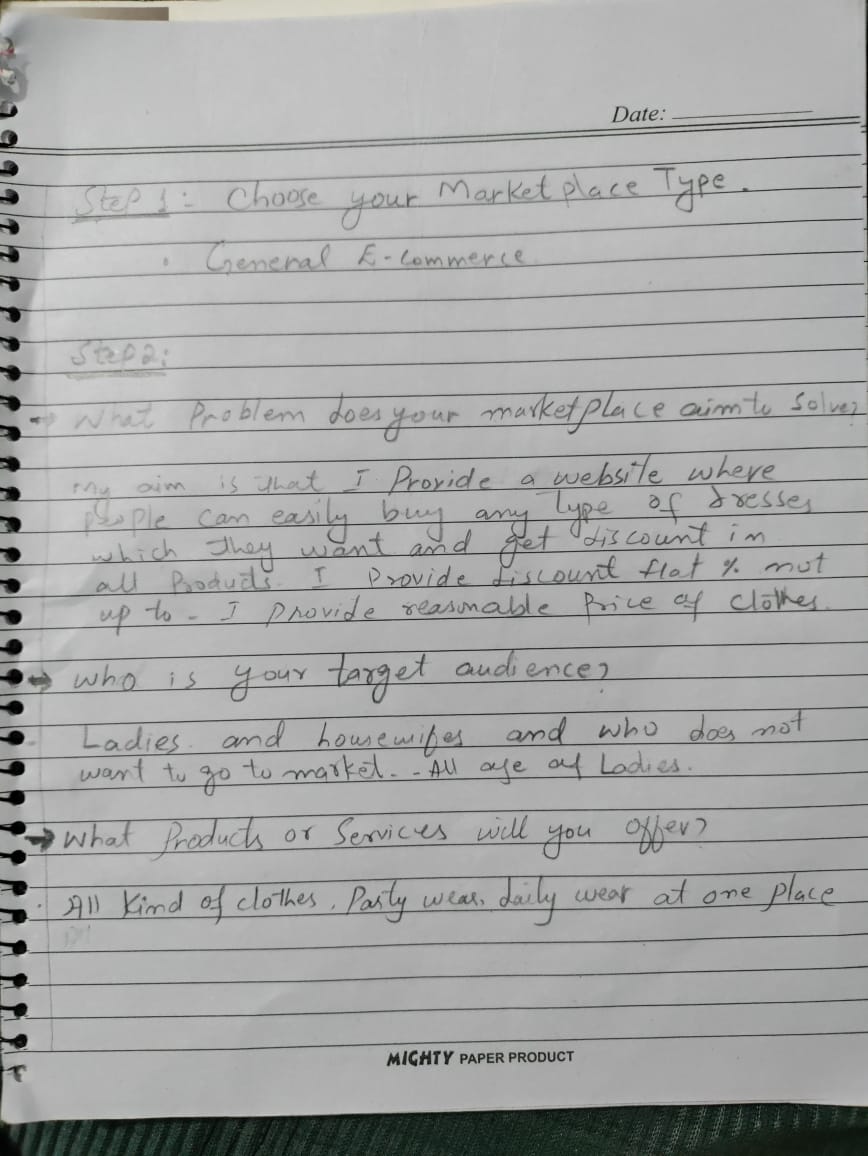 Date:
Step 1: Choose your Marketplace Type.
• General E-commerce
Step 2:
→ What Problem does your marketplace aim to Solve?
My aim is that I Provide a website where
people can easily buy any type of dresses
which they want and get discount in
all Products. I Provide discount flat % not
up to - I provide reasonable Price of Clothes.
→ Who is your target audience?
- Ladies. and housewifes and who does not
want to go to market. - All age of Ladies.
→ What Products or Services will you offer?
• All Kind of clothes, Party wear, daily wear at one place
MIGHTY PAPER PRODUCT